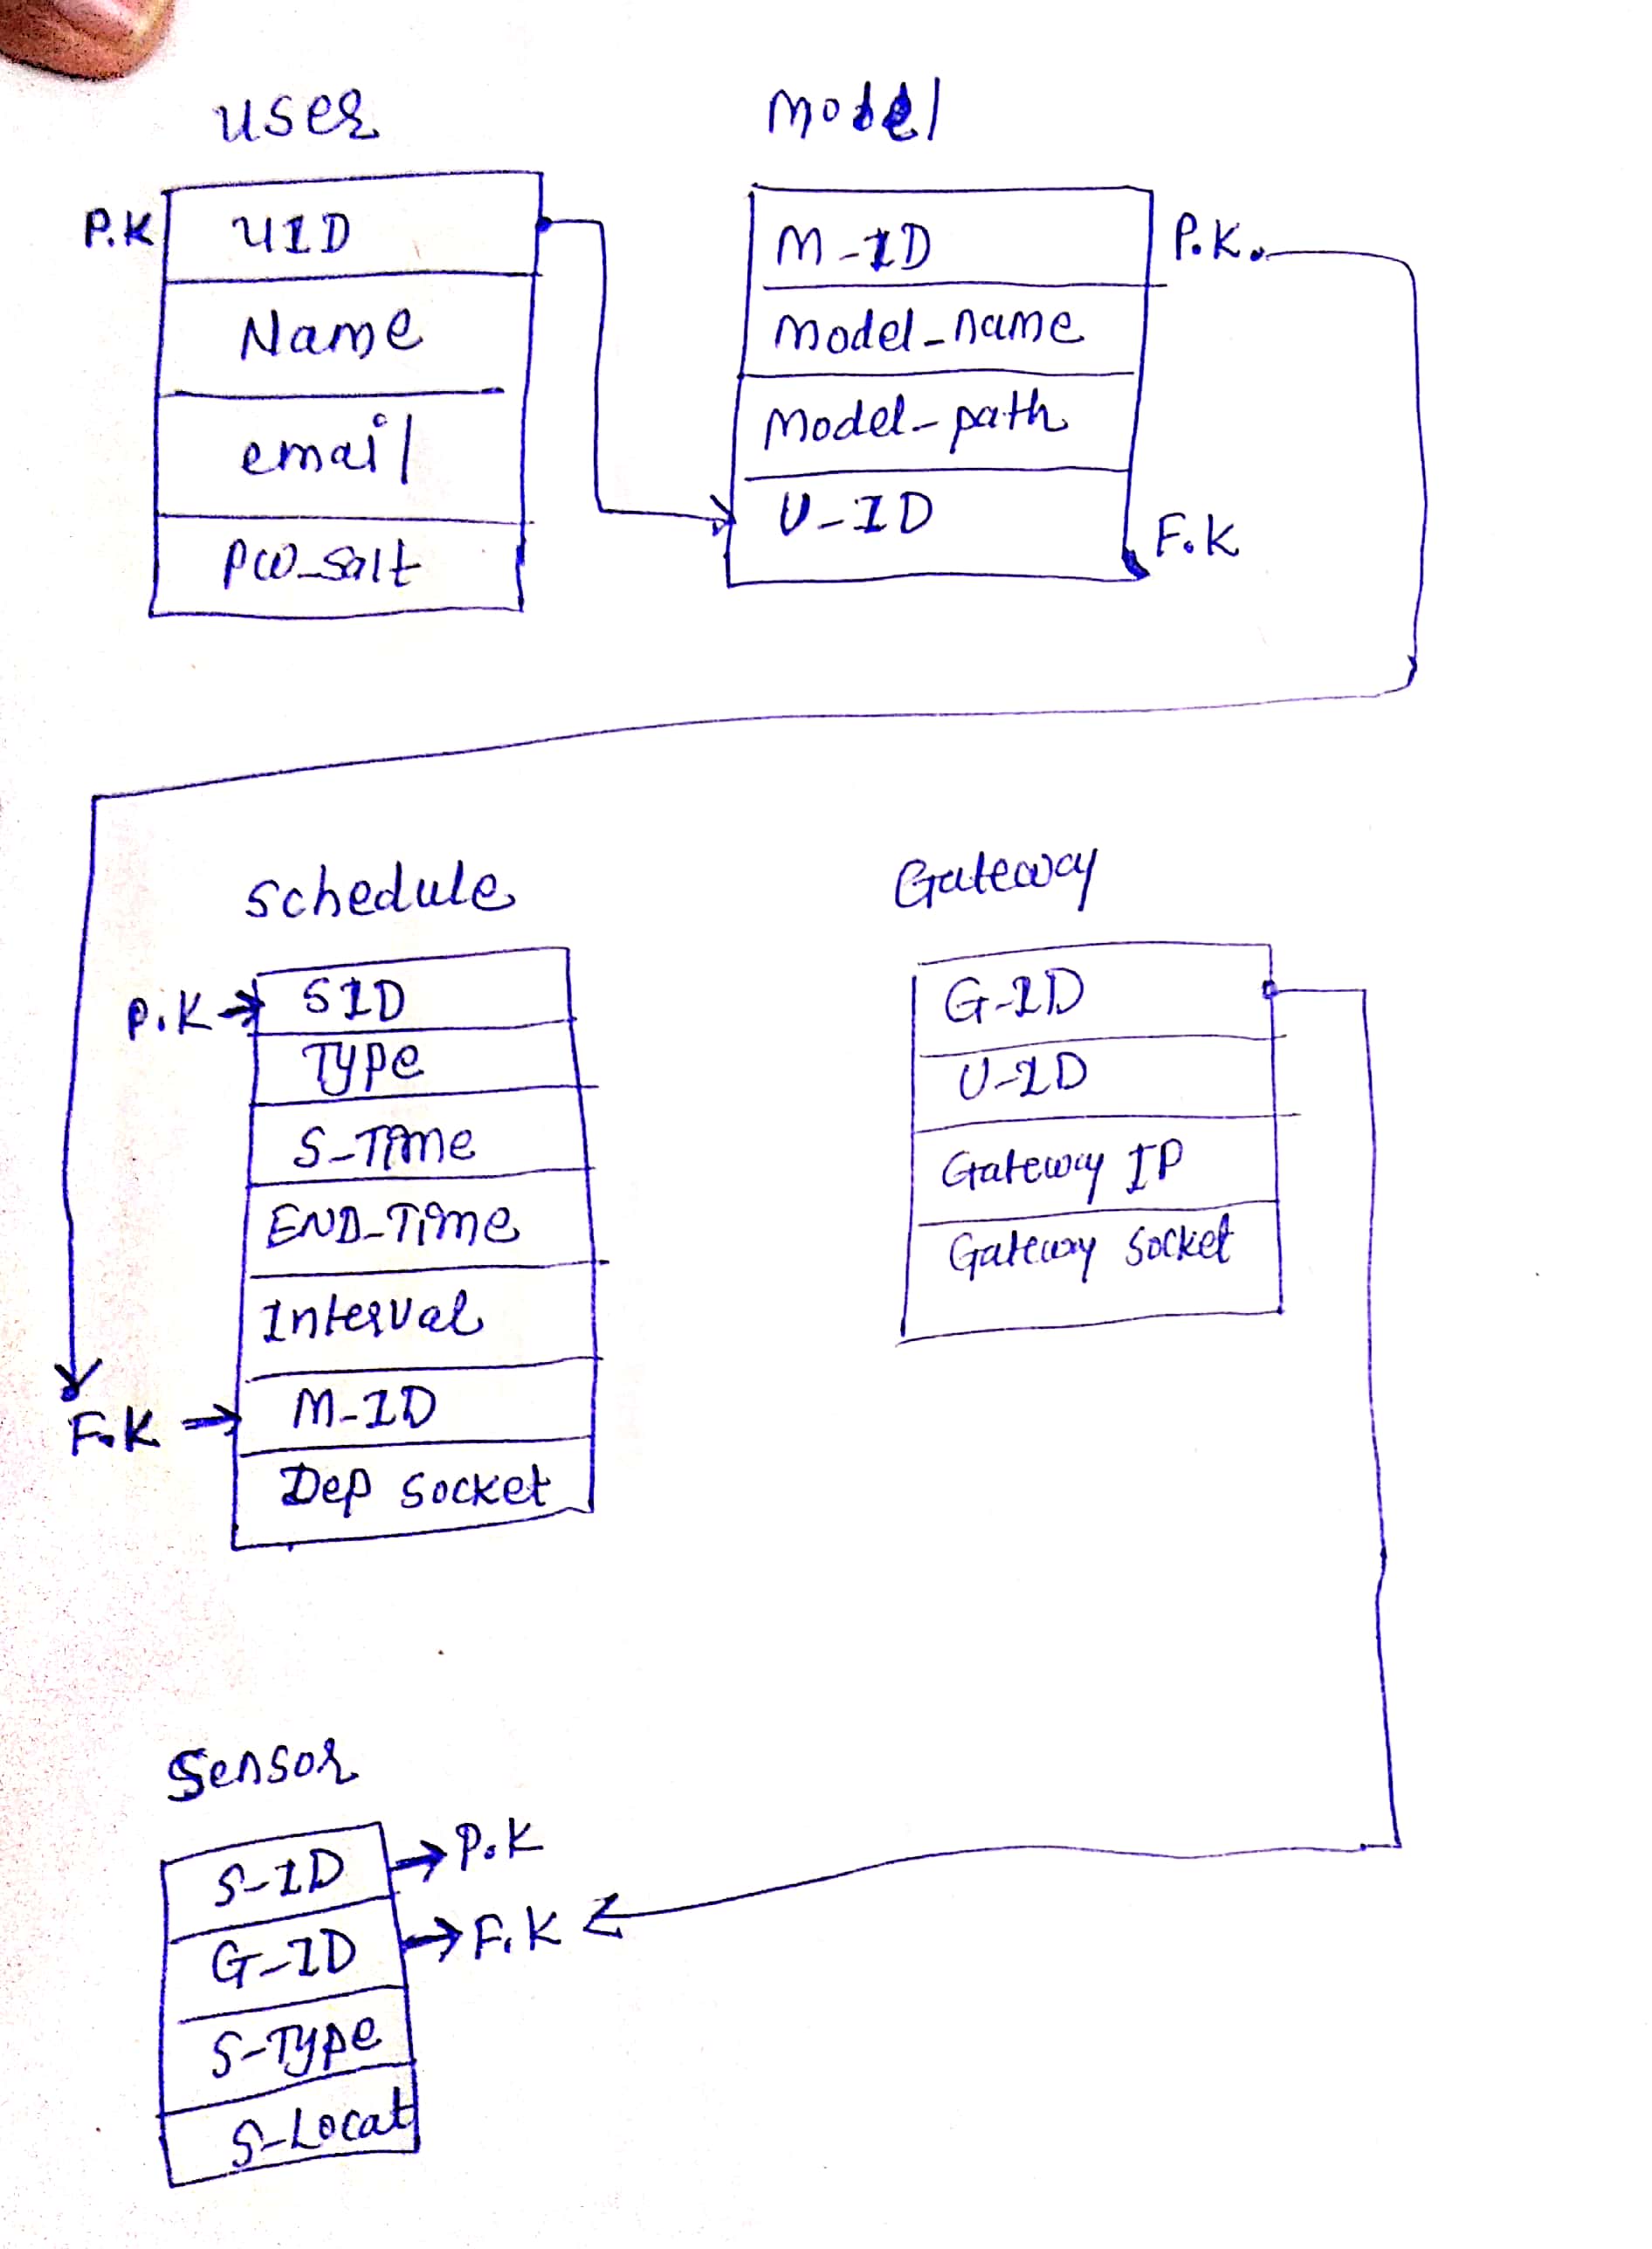 User
P.K UID
Name
email
PW_Salt
Model
M-ID P.K.
Model-name
Model-path
U-ID F.K
Schedule
P.K → SID
Type
S-Time
END-Time
Interval
F.K → M-ID
Dep Socket
Gateway
G-ID
U-ID
Gateway IP
Gateway Socket
Sensor
S-ID → P.K
G-ID → F.K
S-Type
S-Locat